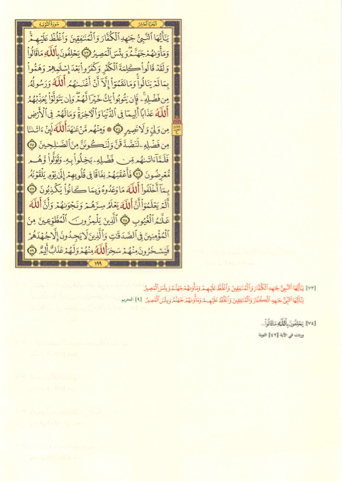 الجزء العاشر سورة التوبة
يَٰٓأَيُّهَا ٱلنَّبِيُّ جَٰهِدِ ٱلۡكُفَّارَ وَٱلۡمُنَٰفِقِينَ وَٱغۡلُظۡ عَلَيۡهِمۡۚ
وَمَأۡوَىٰهُمۡ جَهَنَّمُۖ وَبِئۡسَ ٱلۡمَصِيرُ ٧٣ يَحۡلِفُونَ بِٱللَّهِ مَا قَالُواْ
وَلَقَدۡ قَالُواْ كَلِمَةَ ٱلۡكُفۡرِ وَكَفَرُواْ بَعۡدَ إِسۡلَٰمِهِمۡ وَهَمُّواْ
بِمَا لَمۡ يَنَالُواْۚ وَمَا نَقَمُوٓاْ إِلَّآ أَنۡ أَغۡنَىٰهُمُ ٱللَّهُ وَرَسُولُهُۥ
مِن فَضۡلِهِۦۚ فَإِن يَتُوبُواْ يَكُ خَيۡرٗا لَّهُمۡۖ وَإِن يَتَوَلَّوۡاْ يُعَذِّبۡهُمُ
ٱللَّهُ عَذَابًا أَلِيمٗا فِي ٱلدُّنۡيَا وَٱلۡأٓخِرَةِۚ وَمَا لَهُمۡ فِي ٱلۡأَرۡضِ
مِن وَلِيّٖ وَلَا نَصِيرٖ ٧٤ ۞ وَمِنۡهُم مَّنۡ عَٰهَدَ ٱللَّهَ لَئِنۡ ءَاتَىٰنَا
مِن فَضۡلِهِۦ لَنَصَّدَّقَنَّ وَلَنَكُونَنَّ مِنَ ٱلصَّٰلِحِينَ ٧٥
فَلَمَّآ ءَاتَىٰهُم مِّن فَضۡلِهِۦ بَخِلُواْ بِهِۦ وَتَوَلَّواْ وَّهُم
مُّعۡرِضُونَ ٧٦ فَأَعۡقَبَهُمۡ نِفَاقٗا فِي قُلُوبِهِمۡ إِلَىٰ يَوۡمِ يَلۡقَوۡنَهُۥ
بِمَآ أَخۡلَفُواْ ٱللَّهَ مَا وَعَدُوهُ وَبِمَا كَانُواْ يَكۡذِبُونَ ٧٧
أَلَمۡ يَعۡلَمُوٓاْ أَنَّ ٱللَّهَ يَعۡلَمُ سِرَّهُمۡ وَنَجۡوَىٰهُمۡ وَأَنَّ ٱللَّهَ
عَلَّٰمُ ٱلۡغُيُوبِ ٧٨ ٱلَّذِينَ يَلۡمِزُونَ ٱلۡمُطَّوِّعِينَ مِنَ
ٱلۡمُؤۡمِنِينَ فِي ٱلصَّدَقَٰتِ وَٱلَّذِينَ لَا يَجِدُونَ إِلَّا جُهۡدَهُمۡ
فَيَسۡخَرُونَ مِنۡهُمۡ سَخِرَ ٱللَّهُ مِنۡهُمۡ وَلَهُمۡ عَذَابٌ أَلِيمٌ ٧٩
١٩٩
[٧٣] يَٰٓأَيُّهَا ٱلنَّبِيُّ جَٰهِدِ ٱلۡكُفَّارَ وَٱلۡمُنَٰفِقِينَ وَٱغۡلُظۡ عَلَيۡهِمۡ وَمَأۡوَىٰهُمۡ جَهَنَّمُ وَبِئۡسَ ٱلۡمَصِيرُ
يَٰٓأَيُّهَا ٱلنَّبِيُّ جَٰهِدِ ٱلۡكُفَّارَ وَٱلۡمُنَٰفِقِينَ وَٱغۡلُظۡ عَلَيۡهِمۡ وَمَأۡوَىٰهُمۡ جَهَنَّمُ وَبِئۡسَ ٱلۡمَصِيرُ [٩] التحريم
[٧٤] يَحۡلِفُونَ بِٱللَّهِ مَا قَالُواْ...
وردت في الآية [٤٢] التوبة